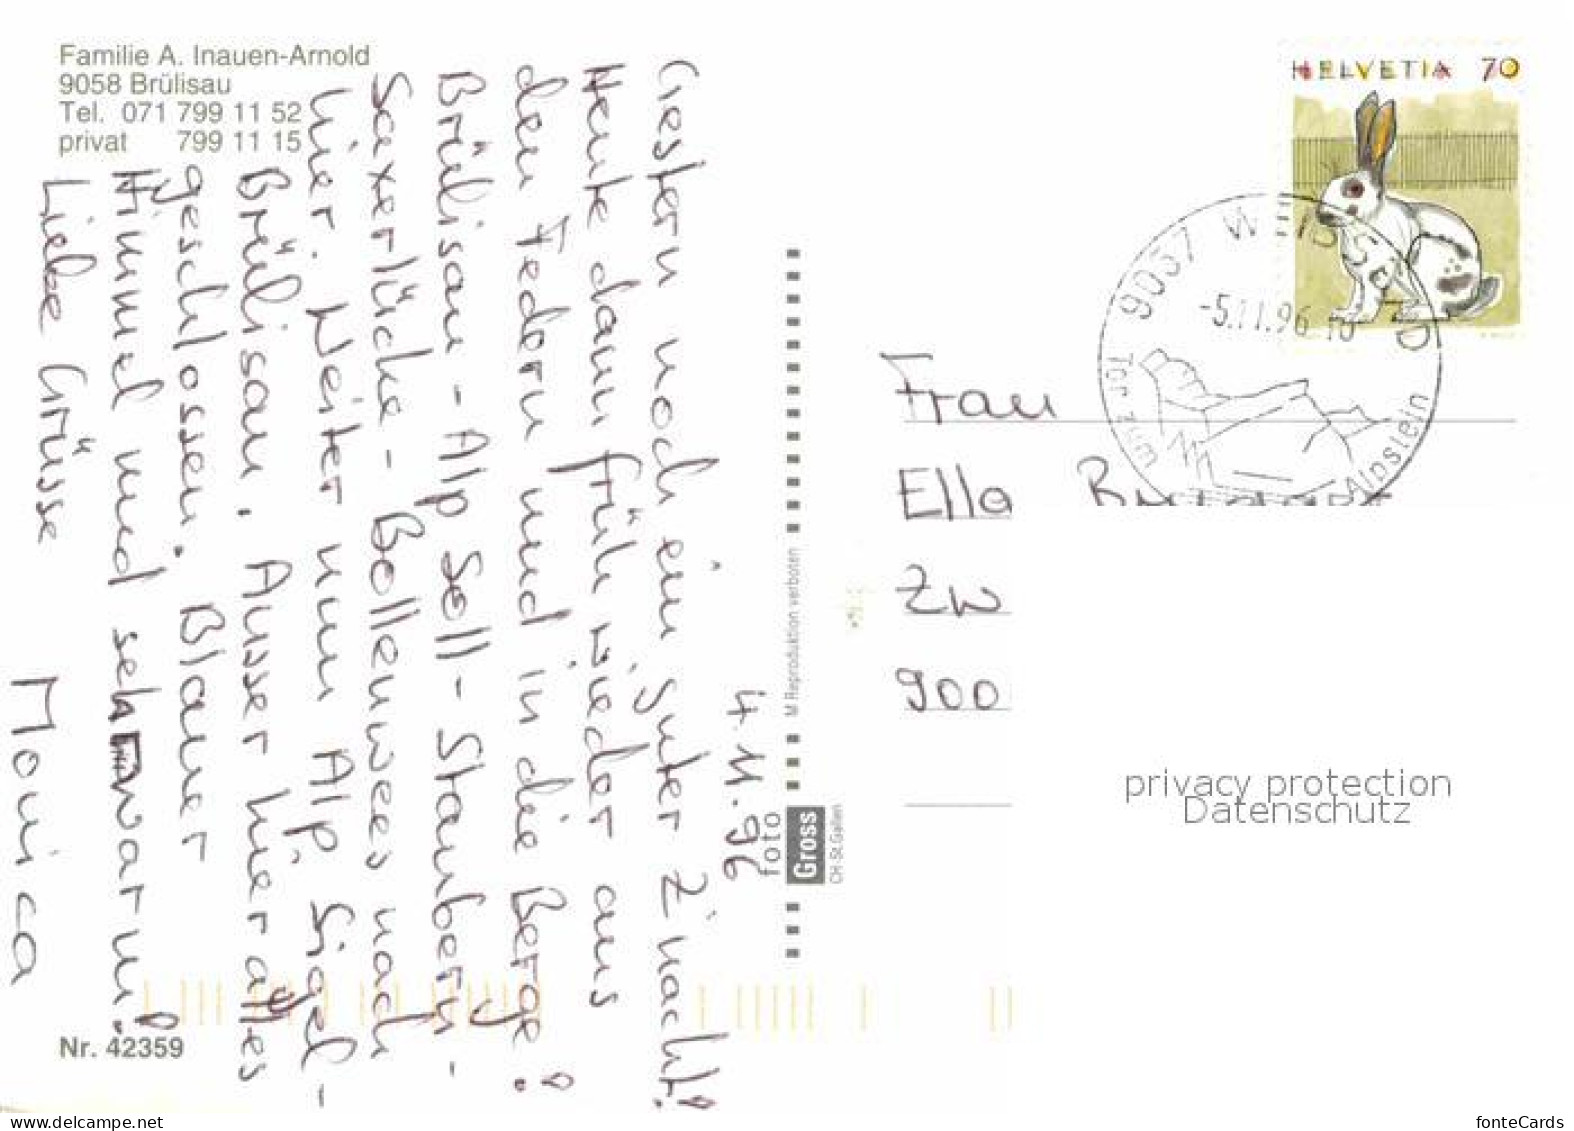 Familie A. Inauen-Arnold
9058 Brülisau
Tel. 071 799 11 52
privat 799 11 15
4.11.96
Gestern noch ein guter Z'nacht!
Heute dann früh wieder aus
den Federn und in die Berge!
Brülisau - Alp Soll - Staubern -
Saxerlücke - Bollenwees nach
hier. Weiter nun Alp Sigel -
Brülisau. Ausser hier alles
geschlossen. Blauer
Himmel und seh warm!
Liebe Grüsse
Monica
Nr. 42359
M Reproduktion verboten
foto
Gross
CH-St.Gallen
HELVETIA 70
9057 WEISSBAD
-5.11.96
Tor zum Alpstein
Frau
Ella
Zw
900
privacy protection
Datenschutz
www.delcampe.net
fonteCards